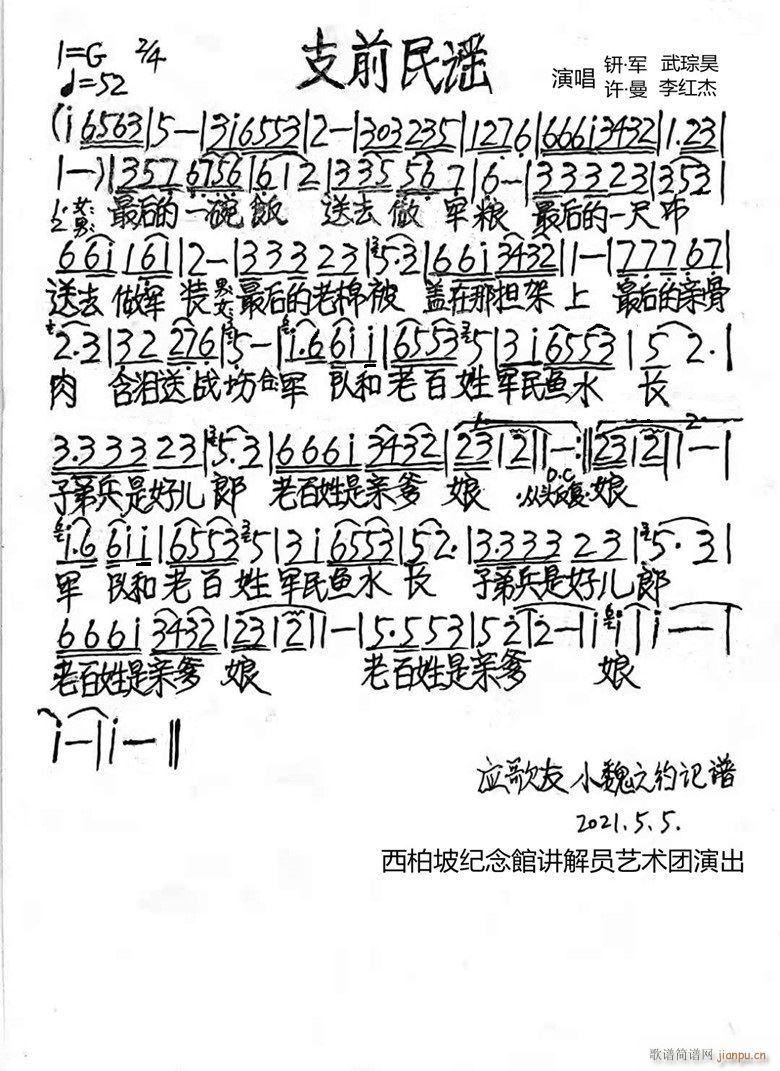 支前民谣
1=G 2/4
♩=52
演唱 钘·军 武琮昊
许·曼 李红杰
(i 6563|5—|3i6553|2—|303235|1276|666i3432|1.23|
1—)|357 6756|6 i 2|335 567|6—|33323|353|
1.女: 2.男: 最后的一碗飯 送去做 军粮 最后的一尺布
66i 161|2—|33323|5.3|66i 3432|1—|77767|
送去 做军 装 男: 女: 最后的老棉被 盖在那担架上 最后的亲骨
2.3|32 276|5—|i.66ii|6553 5|3i6553|5 2.|
肉 含泪送战场 合:军 队和老百姓军民鱼水 长
3.33323|5.3|666i 3432|23 12|1—:‖23 12|1—|
子弟兵是好儿郎 老百姓是亲爹 娘 D.C 从头反复 娘
i.6 6ii|6553 5|3i6553|52.|3.33323|5.3|
军 队和老百姓军民鱼水 长 子弟兵是好儿郎
666i 3432|23 12|1—|5.553|52|2—|i i|i—|
老百姓是亲爹 娘 老百姓是亲爹 娘
i—|i—‖
应歌友小魏之约记谱
2021.5.5.
西柏坡纪念館讲解员艺术团演出
歌谱简谱网 jianpu.cn